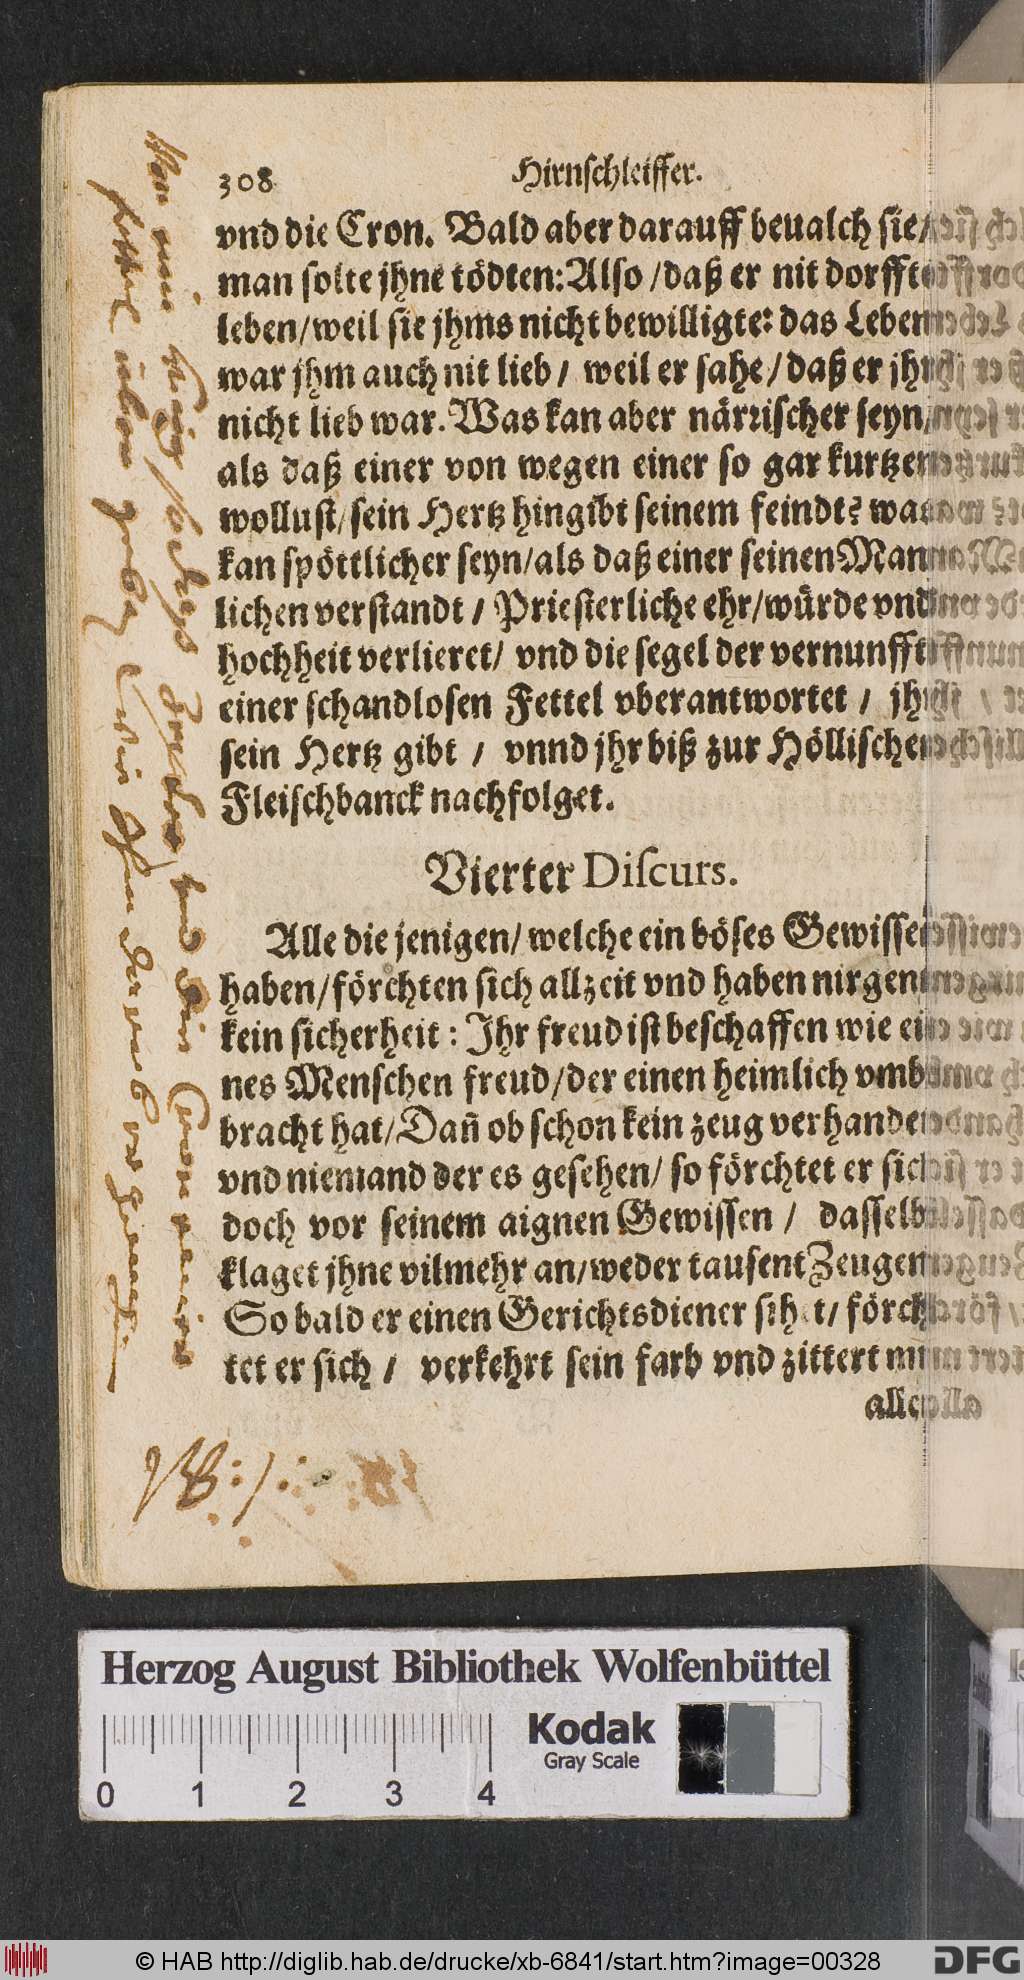 308 Hirnschleiffer.
vnd die Cron. Bald aber darauff beualch sie/
man solte jhne tödten: Also / daß er nit dorffte
leben/ weil sie jhms nicht bewilligte: das Leben
war jhm auch nit lieb / weil er sahe / daß er jhr
nicht lieb war. Was kan aber närrischer seyn/
als daß einer von wegen einer so gar kurtzen
wollust/ sein Hertz hingibt seinem feindt? was
kan spöttlicher seyn/ als daß einer seinen Mann
lichen verstandt / Priesterliche ehr/ würde vnd
hochheit verlieret/ vnd die segel der vernunfft
einer schandlosen Fettel vberantwortet / jhr
sein Hertz gibt / vnnd jhr biß zur Höllischen
Fleischbanck nachfolget.
Vierter Discurs.
Alle die jenigen/ welche ein böses Gewissen
haben/ förchten sich allzeit vnd haben nirgent
kein sicherheit: Ihr freud ist beschaffen wie ei
nes Menschen freud/ der einen heimlich vmb
bracht hat/ Dañ ob schon kein zeug verhanden
vnd niemand der es gesehen/ so förchtet er sich
doch vor seinem aignen Gewissen / dasselb
klaget jhne vilmehr an/ weder tausent Zeugen
So bald er einen Gerichtsdiener sihet/ förch
tet er sich / verkehrt sein farb vnd zittert mm
alle
Herzog August Bibliothek Wolfenbüttel
Kodak
Gray Scale
0 1 2 3 4
© HAB http://diglib.hab.de/drucke/xb-6841/start.htm?image=00328
DFG